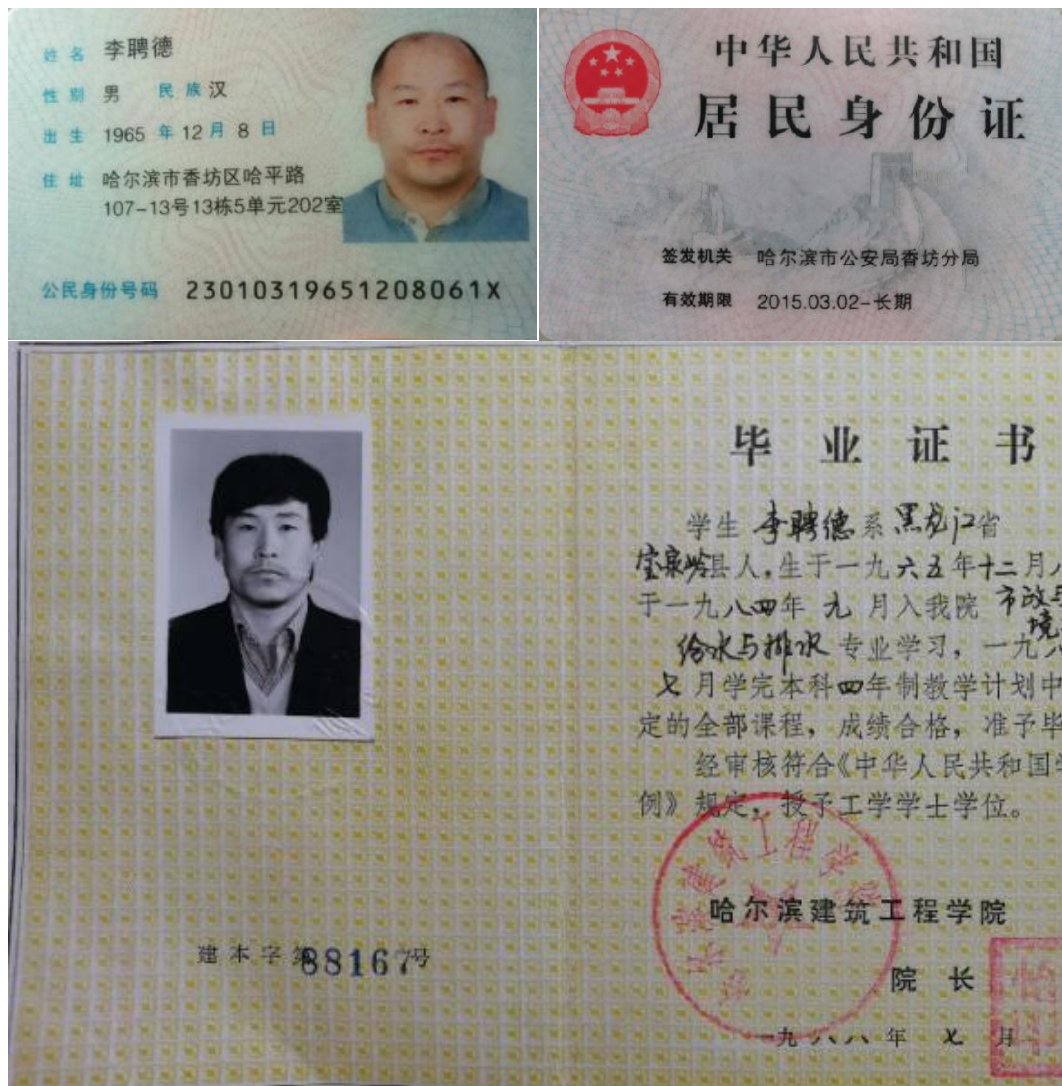 姓名 李聘德
性别 男 民族 汉
出生 1965 年 12 月 8 日
住址 哈尔滨市香坊区哈平路
107-13号13栋5单元202室
公民身份号码 23010319651208061X
中华人民共和国
居民身份证
签发机关 哈尔滨市公安局香坊分局
有效期限 2015.03.02-长期
毕业证书
学生 李聘德 系 黑龙江省
宝泉岭县人,生于一九六五年十二月八
于一九八四年 九 月入我院 市政与
境
给水与排水 专业学习,一九八
七月学完本科四年制教学计划中
定的全部课程,成绩合格,准予毕
经审核符合《中华人民共和国学
例》规定,授予工学学士学位。
哈尔滨建筑工程学院
建本字第88167号
院 长
一九八八年 七 月